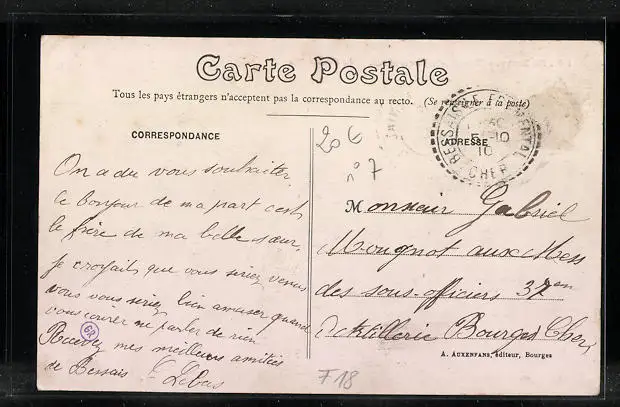 Carte Postale
Tous les pays étrangers n'acceptent pas la correspondance au recto. (Se renseigner à la poste)
CORRESPONDANCE
ADRESSE
BESSAIS-LE-FROMENTAL
5-10
10
CHER
20 €
n° 7
On a du vous souhaiter
le bonjour de ma part c'est
le frère de ma belle sœur.
Je croyais que vous seriez venus
vous vous seriez bien amuser quand
vous courer me parler de rien
Recevez mes meilleures amitiés
de Bessais Lebas
GR
Monsieur Gabriel
Mougnot aux Mess
des sous-officiers 37em
d'Artillerie Bourges Cher
A. AUXENFANS, éditeur, Bourges
F 18